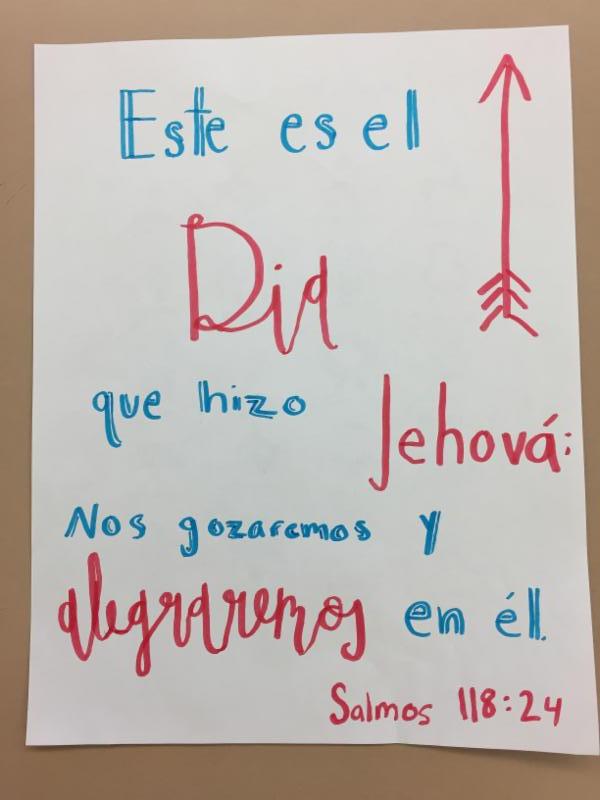 Este es el
Dia
que hizo Jehová:
Nos gozaremos y
alegraremos en él.
Salmos 118:24